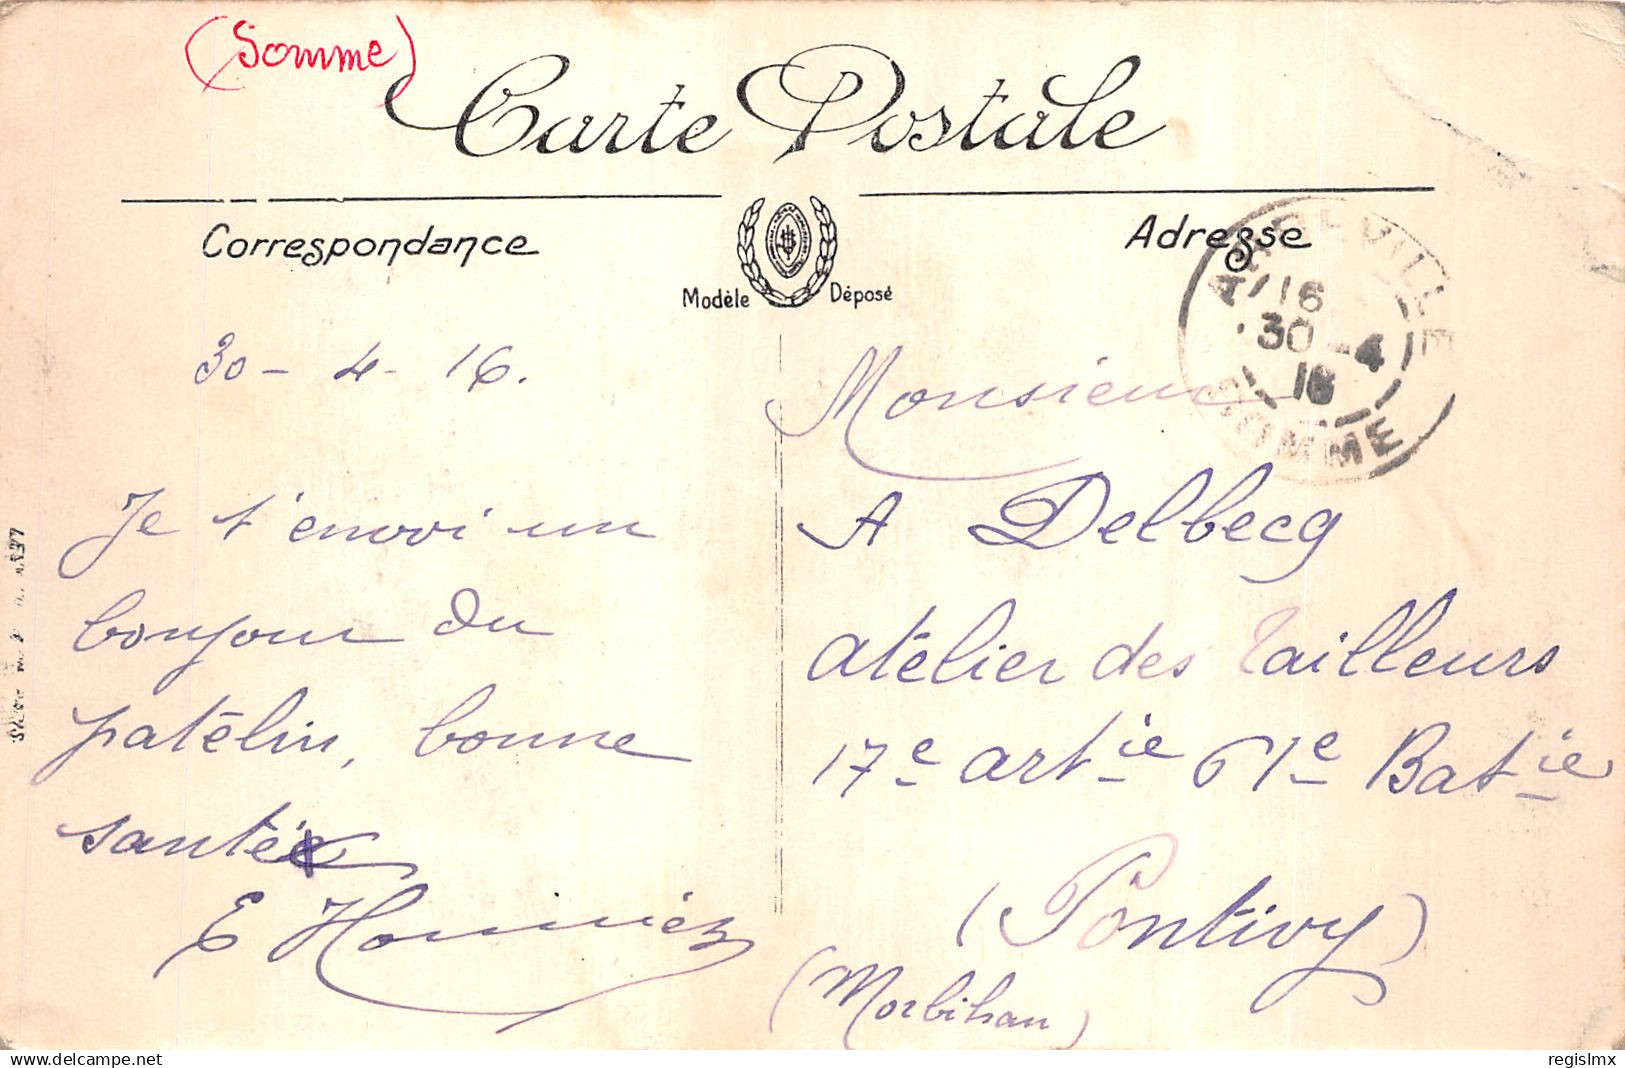 (Somme)
Carte Postale
Correspondance
Adresse
Modèle Déposé
ABBEVILLE
16
30 - 4
16
SOMME
30 - 4 - 16.
Je t'envoi un
bonjour du
patélin, bonne
santé
E
Monsieur
A Delbecq
atélier des Tailleurs
17e artie 61e Batie
(Pontivy)
(Morbihan)
www.delcampe.net
regislmx